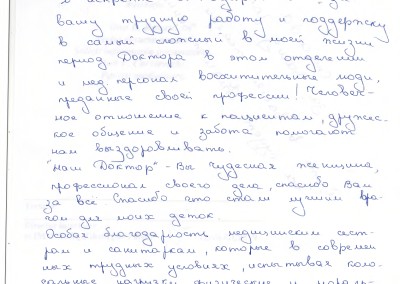 вашу трудную работу и поддержку
в самый сложный в моей жизни
период. Доктора в этом отделении
и мед. персонал восхитительные люди,
преданные своей профессии! Человеч-
ное отношение к пациентам, дружес-
кое общение и забота помогают
нам выздоравливать.
"Наш Доктор" - Вы чудесная женщина,
профессионал своего дела, спасибо Вам
за все. Спасибо что стали лучшим вра-
чом для моих деток.
Особая благодарность медицинским сест-
рам и санитаркам, которые в современ
ных трудных условиях, испытывая коло-
сальные нагрузки физические и мораль-